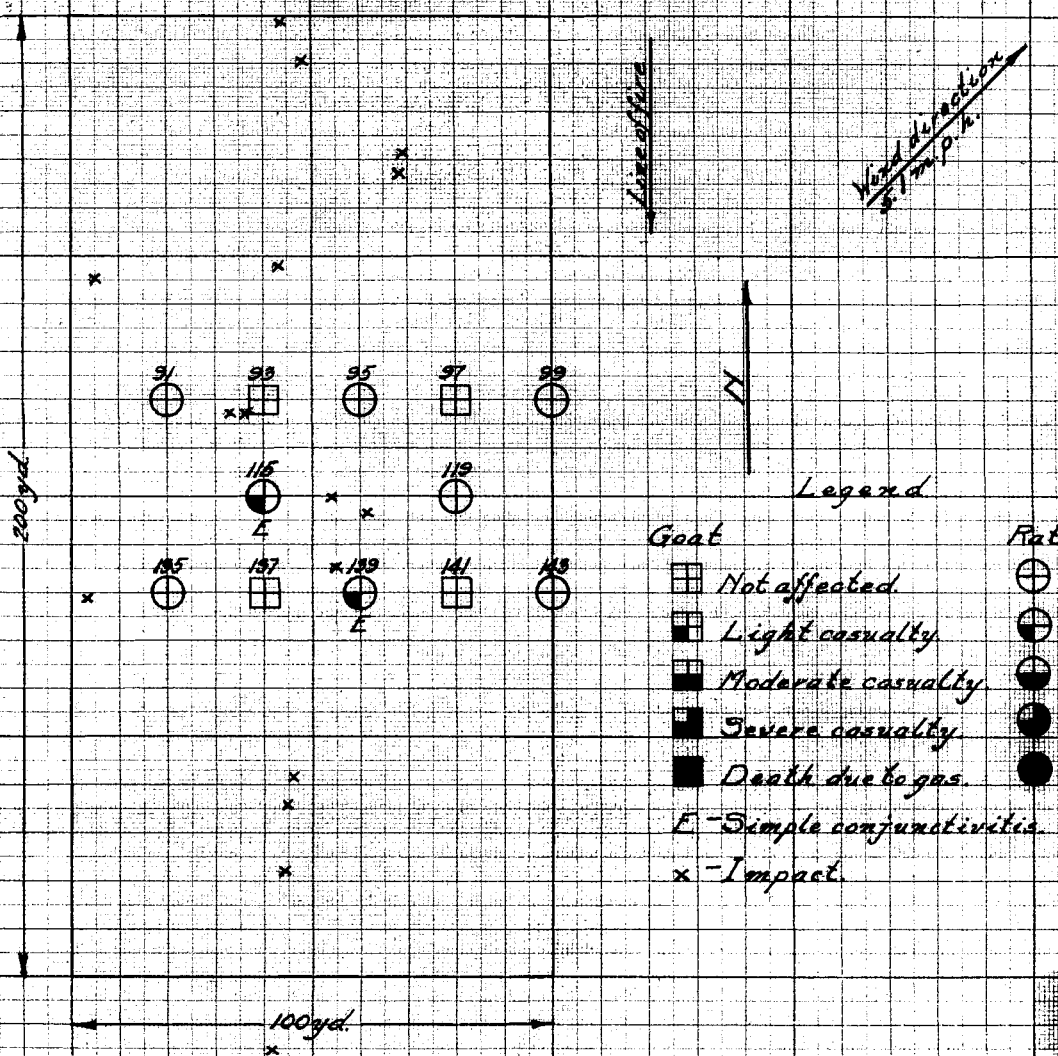 Line of fire
Wind direction
5.1 m.p.h.
N
200 yd.
91 93 95 97 99
115 119
E
135 137 139 141 143
E
100 yd.
Legend
Goat Rat
Not affected.
Light casualty
Moderate casualty.
Severe casualty
Death due to gas.
E - Simple conjunctivitis.
x - Impact.